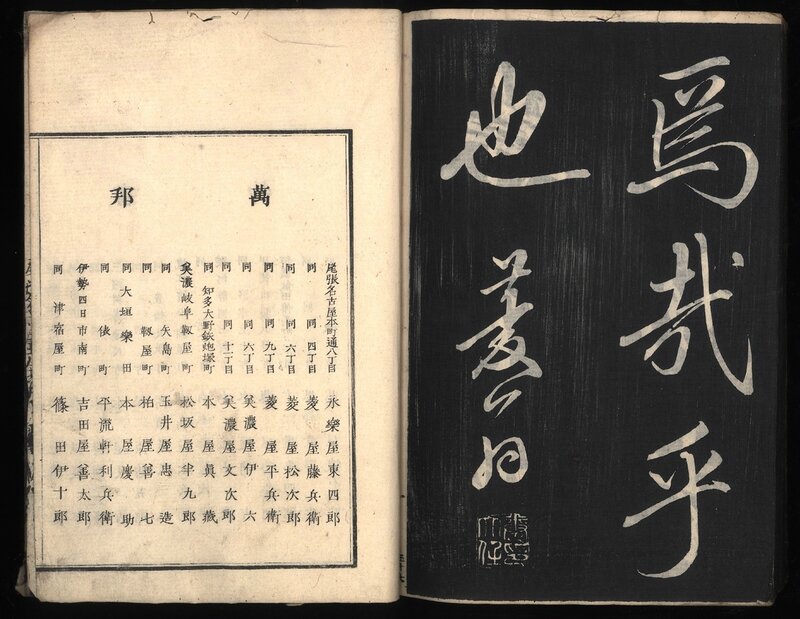 焉哉乎
也
萬邦
尾張名古屋本町通八丁目 永樂屋東四郎
同 同 四丁目 菱屋藤兵衛
同 同 六丁目 菱屋松次郎
同 同 九丁目 菱屋平兵衛
同 同 六丁目 美濃屋伊六
同 同 十一丁目 美濃屋文次郎
同 知多大野鉄炮塚町 本屋眞藏
美濃岐阜靱屋町 松坂屋半九郎
同 矢島町 玉井屋忠造
同 靱屋町 柏屋善七
同 大垣樂田 本屋慶助
同 俵町 平流軒利兵衛
伊勢四日市南町 吉田屋善太郎
同 津宿屋町 篠田伊十郎